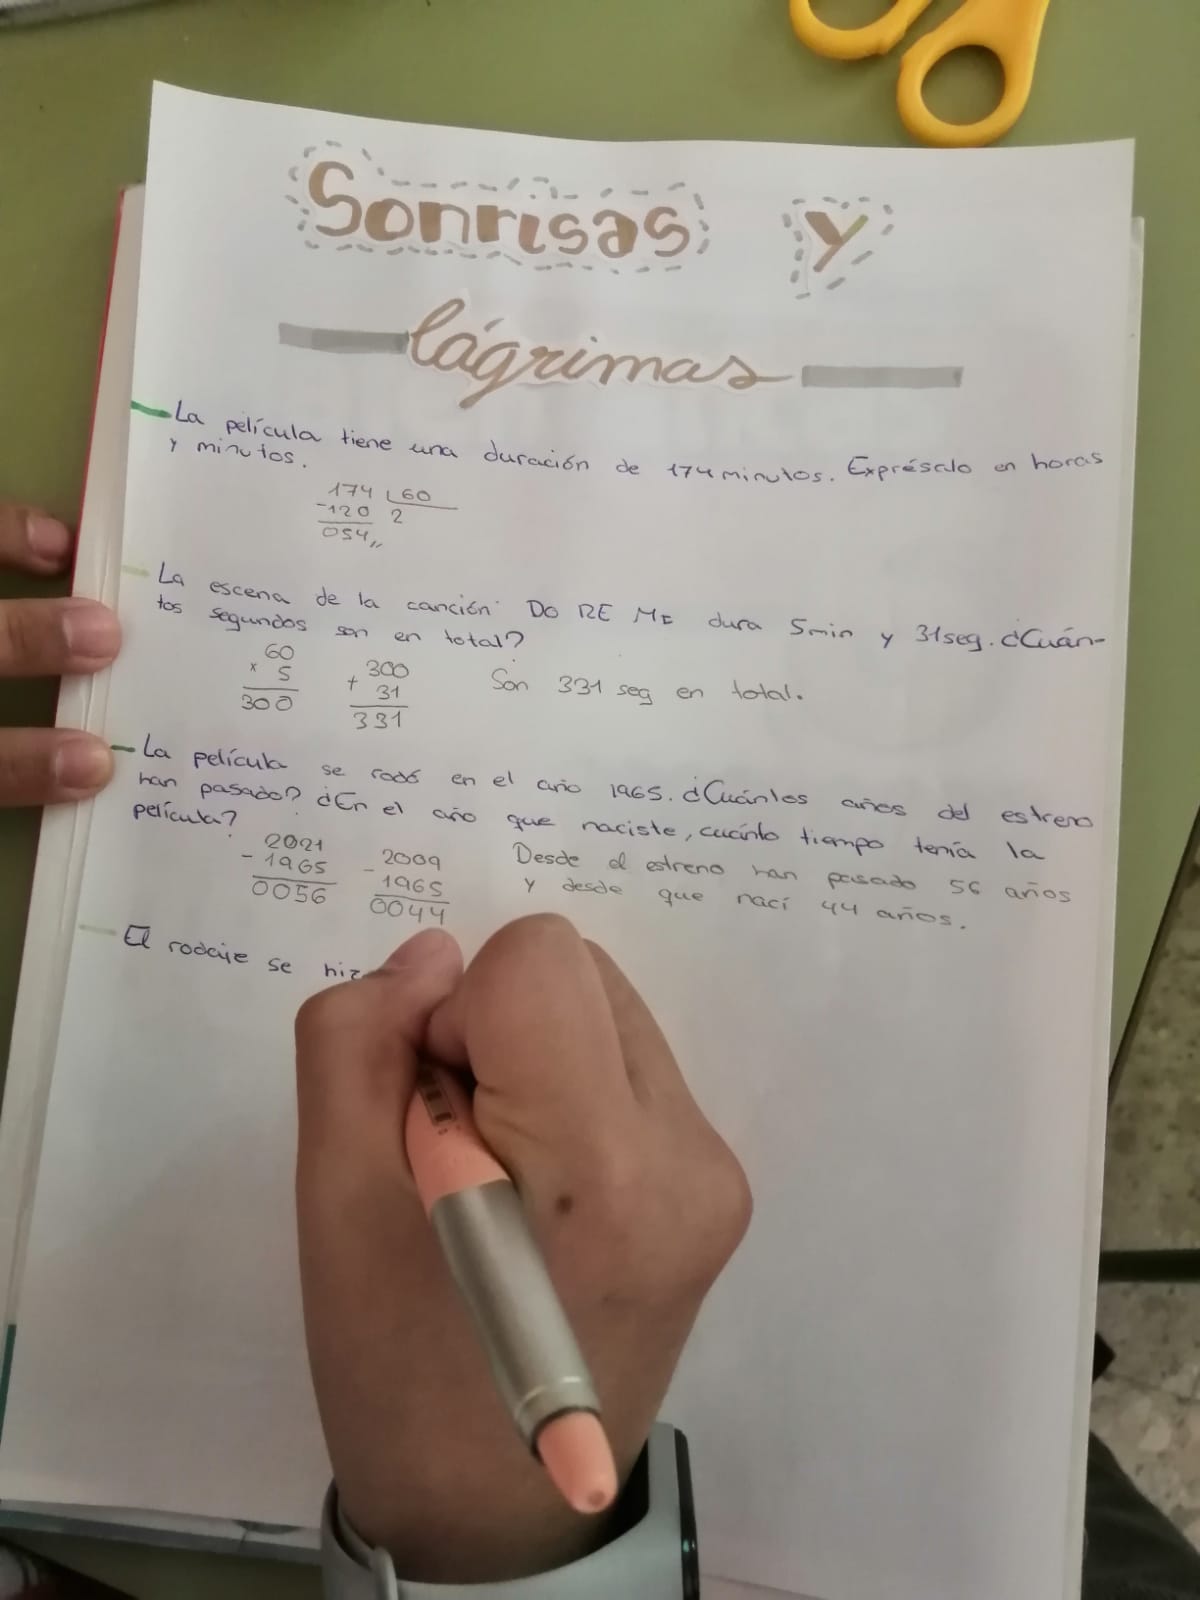 Sonrisas y
lágrimas
La película tiene una duración de 174 minutos. Exprésalo en horas
y minutos.
174 60
-120 2
054,,
La escena de la canción DO RE MI dura 5min y 31seg. ¿Cuán-
tos segundos son en total?
60
x 5
300
300
+ 31
331
Son 331 seg en total.
La película se rodó en el año 1965. ¿Cuántos años del estreno
han pasado? ¿En el año que naciste, cuánto tiempo tenía la
película?
2021
- 1965
0056
- 2009
1965
0044
Desde el estreno han pasado 56 años
y desde que nací 44 años.
El rodaje se hiz